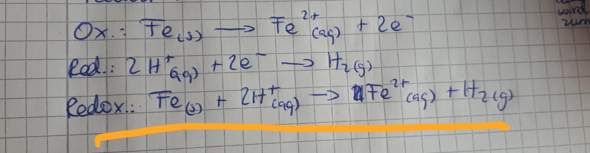 Ox.: Fe(s) → Fe²⁺(aq) + 2e⁻
Red.: 2H⁺(aq) + 2e⁻ → H₂(g)
Redox.: Fe(s) + 2H⁺(aq) → Fe²⁺(aq) + H₂(g)
wird
zum